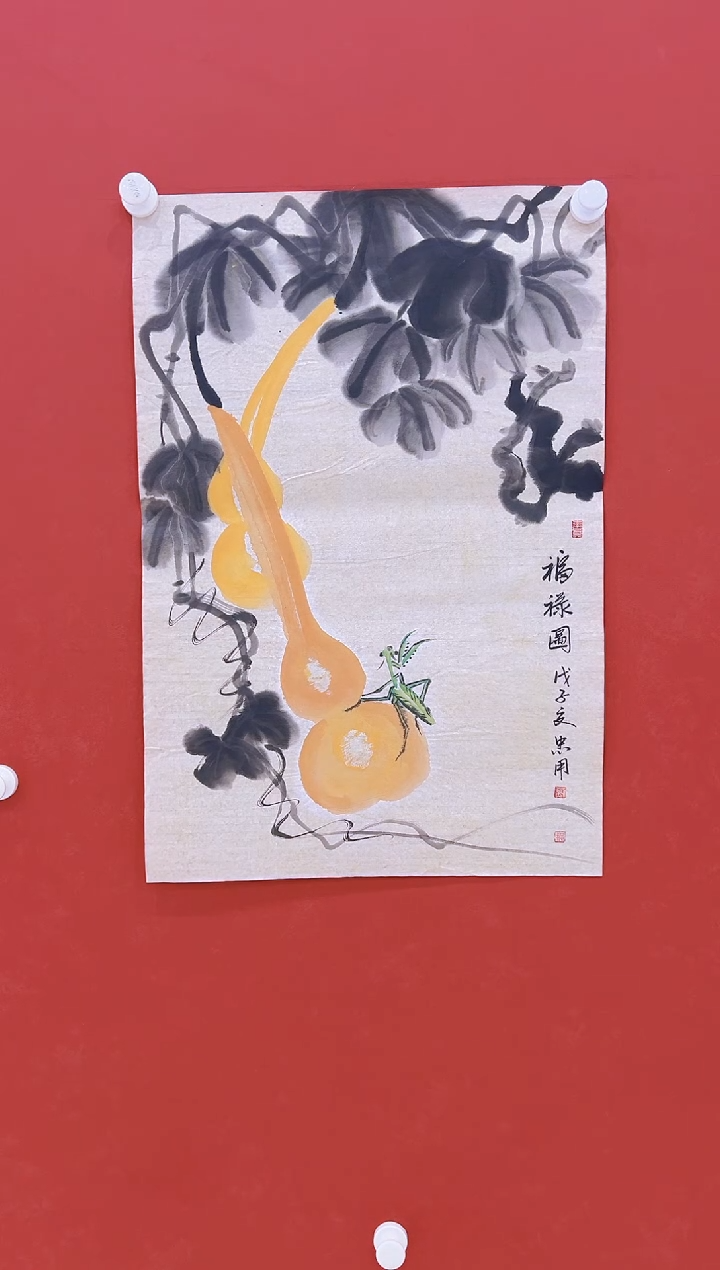 福祿圖
戊子夏忠用